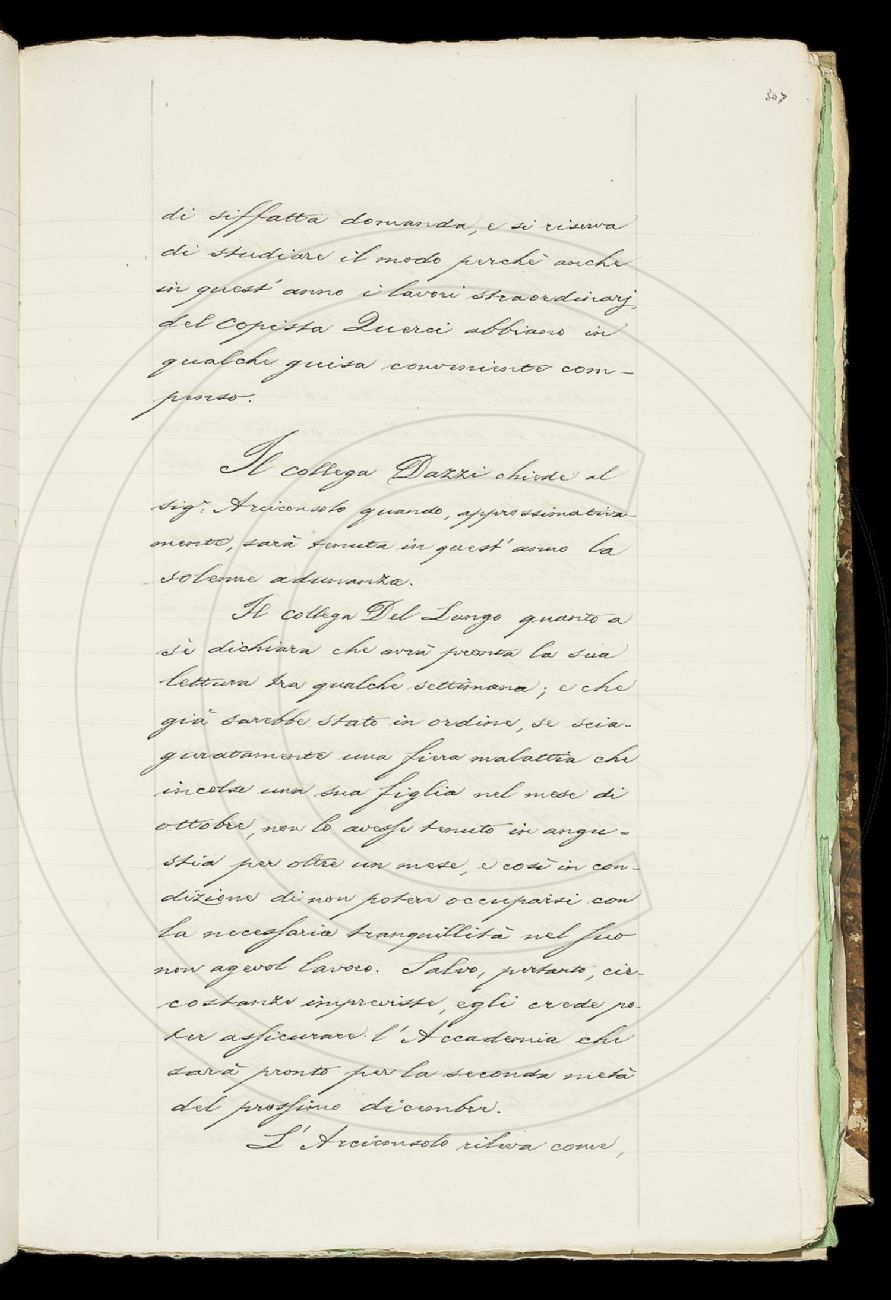 307
di siffatta domanda, e si riserva
di studiare il modo perchè anche
in quest' anno i lavori straordinarj
del copista Querci abbiano in
qualche guisa conveniente com-
penso.
Il collega Dazzi chiede al
sigr. Arciconsolo quando, approssimativa-
mente, sarà tenuta in quest' anno la
solenne adunanza.
Il collega Del Lungo quanto a
sè dichiara che avrà pronta la sua
lettura tra qualche settimana; e che
già sarebbe stato in ordine, se scia-
guratamente una fiera malattia che
incolse una sua figlia nel mese di
ottobre, non lo avesse tenuto in angu-
stia per oltre un mese, e così in con-
dizione di non potere occuparsi con
la necessaria tranquillità nel suo
non agevol lavoro. Salvo, pertanto, cir-
costanze impreviste, egli crede po-
ter assicurare l' Accademia che
sarà pronto per la seconda metà
del prossimo dicembre.
L' Arciconsolo rileva come,